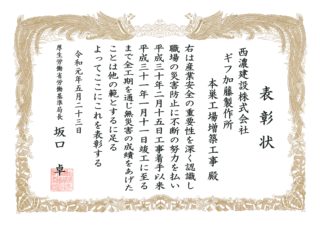 表彰状
西濃建設株式会社
ギフ加藤製作所
本巣工場増築工事 殿
右は産業安全の重要性を深く認識し
職場の災害防止に不断の努力を払い
平成三十年二月十五日工事着手以来
平成三十一年一月十一日竣工に至る
まで全工期を通じ無災害の成績をあげた
ことは他の範とするに足る
よってここにこれを表彰する
令和元年五月二十三日
厚生労働省労働基準局長
坂口 卓